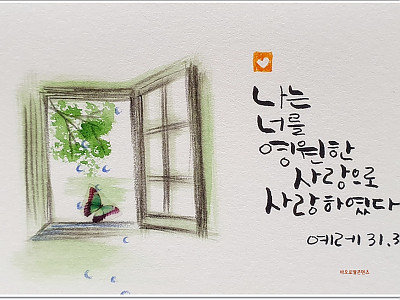 나는
너를
영원한
사랑으로
사랑하였다
예레 31.3